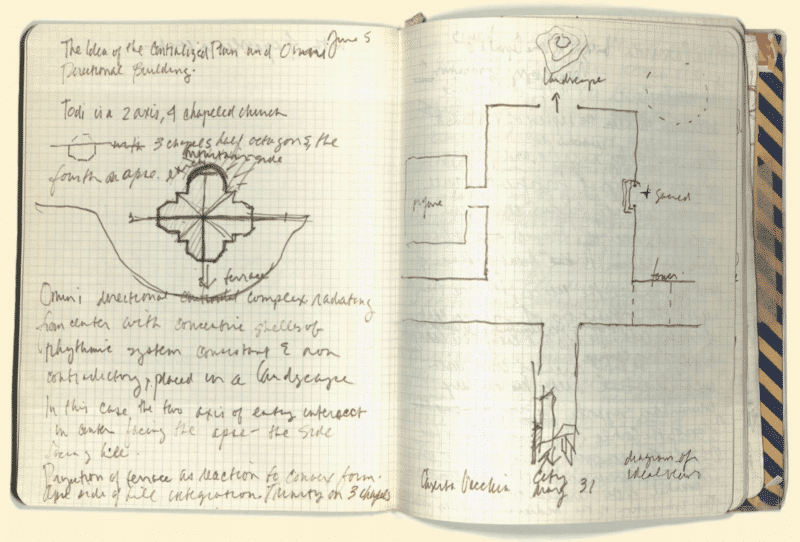 June 5
The Idea of the Centralized Plan and Omni
Directional Building.
Todi is a 2 axis, 4 chapeled church
with 3 chapels half octagon & the
fourth an apse.
mountain side
terrace
Omni directional complex radiating
from center with concentric shells of
rhythmic system consistant & non
contradictory, placed in a landscape
In this case, the two axis of entry intersect
in center facing the apse - the side
facing hill.
Projection of terrace as reaction to convex form.
Apse side of hill integration. Trinity on 3 chapels
landscape
profane
sacred
tower
Civita Vecchia
City
diag 31
diagram of
ideal views